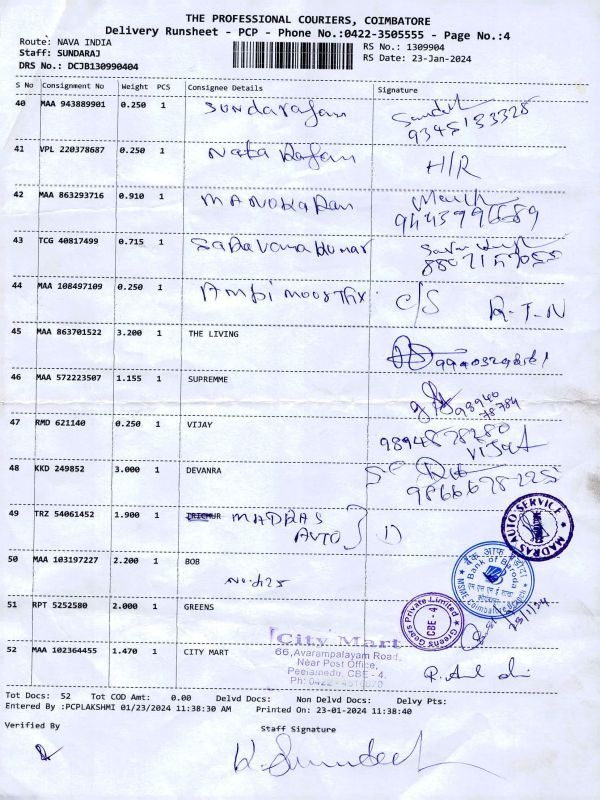 THE PROFESSIONAL COURIERS, COIMBATORE
Delivery Runsheet - PCP - Phone No.:0422-3505555 - Page No.:4
Route: NAVA INDIA
RS No.: 1309904
Staff: SUNDARAJ
RS Date: 23-Jan-2024
DRS No.: DCJB130990404
S No Consignment No Weight PCS Consignee Details Signature
40 MAA 943889901 0.250 1 Sundarajan
9345133328
41 VPL 220378687 0.250 1 Natarajan H/R
42 MAA 863293716 0.910 1 MANOHARan
43 TCG 40817499 0.715 1 Saravanakumar
44 MAA 108497109 0.250 1 C/S R-T-N
45 MAA 863701522 3.200 1 THE LIVING
46 MAA 572223507 1.155 1 SUPREMME
98940
78784
47 RMD 621140 0.250 1 VIJAY
9894878280
VIJAY
48 KKD 249852 3.000 1 DEVANRA
49 TRZ 54061452 1.900 1 MADRAS
AUTO
MADRAS AUTO SERVICE
50 MAA 103197227 2.200 1 BOB
No:425
बैंक ऑफ़ बड़ौदा
Bank of Baroda
MSME Coimbatore Branch
51 RPT 5252580 2.000 1 GREENS
Greens Gears Private Limited
CBE - 4
52 MAA 102364455 1.470 1 CITY MART
City Mart
66,Avarampalayam Road,
Near Post Office,
Peelamedu, CBE - 4.
Tot Docs: 52 Tot COD Amt: 0.00 Delvd Docs: Non Delvd Docs: Delvy Pts:
Entered By :PCPLAKSHMI 01/23/2024 11:38:30 AM Printed On: 23-01-2024 11:38:40
Verified By Staff Signature